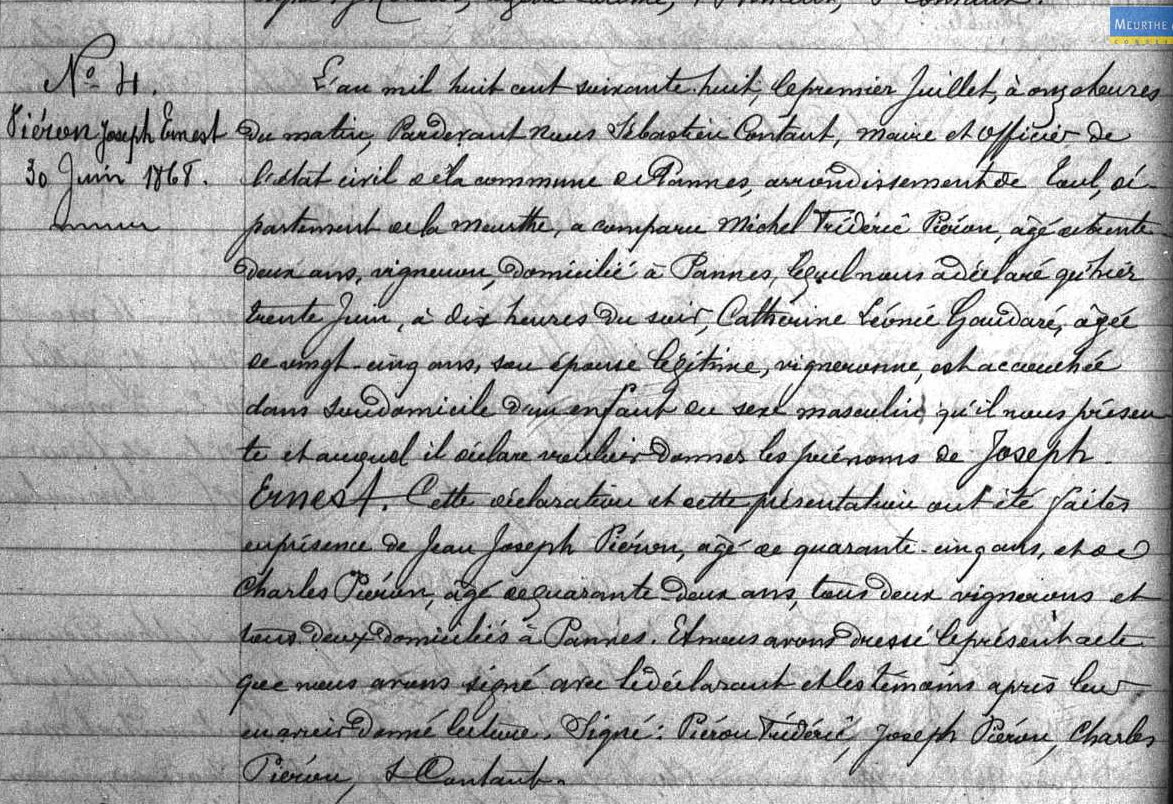 MEURTHE
N° 4.
Piéron Joseph Ernest
30 Juin 1868.
L'an mil huit cent soixante huit, le premier Juillet, à onze heures
du matin, Pardevant nous Sébastien Contant, maire et officier de
l'état civil de la commune de Pannes, arrondissement de Toul, dé-
partement de la Meurthe, a comparu Michel Frédéric Piéron, âgé de trente-
deux ans, vigneron, domicilié à Pannes, lequel nous a déclaré qu'hier
trente Juin, à dix heures du soir, Catherine Léonie Gaudaré, âgée
de vingt-cinq ans, son épouse légitime, vigneronne, est accouchée
dans son domicile d'un enfant du sexe masculin qu'il nous présen-
te et auquel il déclare vouloir donner les prénoms de Joseph
Ernest. Cette déclaration et cette présentation ont été faites
en présence de Jean Joseph Piéron, âgé de quarante-cinq ans, et de
Charles Piéron, âgé de quarante-deux ans, tous deux vignerons et
tous deux domiciliés à Pannes. Et nous avons dressé le présent acte
que nous avons signé avec le déclarant et les témoins après leur
en avoir donné lecture. Signé: Piéron Frédéric, Joseph Piéron, Charles
Piéron, S Contant.